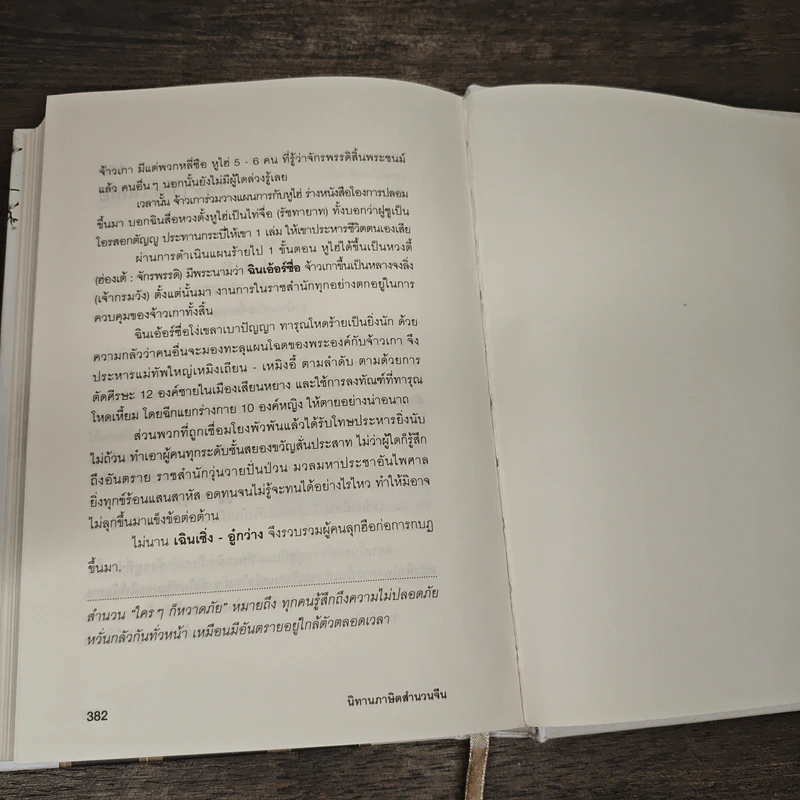 จ้าวเกา มีแต่พวกหลี่ซือ หูไฮ่ 5 - 6 คน ที่รู้ว่าจักรพรรดิสิ้นพระชนม์
แล้ว คนอื่นๆ นอกนั้นยังไม่มีผู้ใดล่วงรู้เลย
เวลานั้น จ้าวเการ่วมวางแผนการกับหูไฮ่ ร่างหนังสือโองการปลอม
ขึ้นมา บอกฉินสื่อหวงตั้งหูไฮ่เป็นไท่จื่อ (รัชทายาท) ทั้งบอกว่าฝูซูเป็น
โอรสอกตัญญู ประทานกระบี่ให้เขา 1 เล่ม ให้เขาประหารชีวิตตนเองเสีย
ผ่านการดำเนินแผนร้ายไป 1 ขั้นตอน หูไฮ่ได้ขึ้นเป็นหวงตี้
(ฮ่องเต้ : จักรพรรดิ) มีพระนามว่า ฉินเอ้อร์ซื่อ จ้าวเกาขึ้นเป็นหลางจงลิ่ง
(เจ้ากรมวัง) ตั้งแต่นั้นมา งานการในราชสำนักทุกอย่างตกอยู่ในการ
ควบคุมของจ้าวเกาทั้งสิ้น
ฉินเอ้อร์ซื่อโง่เขลาเบาปัญญา ทารุณโหดร้ายเป็นยิ่งนัก ด้วย
ความกลัวว่าคนอื่นจะมองทะลุแผนโฉดของพระองค์กับจ้าวเกา จึง
ประหารแม่ทัพใหญ่เหมิงเถียน - เหมิงอี้ ตามลำดับ ตามด้วยการ
ตัดศีรษะ 12 องค์ชายในเมืองเสียนหยาง และใช้การลงทัณฑ์ที่ทารุณ
โหดเหี้ยม โดยฉีกแยกร่างกาย 10 องค์หญิง ให้ตายอย่างน่าอนาถ
ส่วนพวกที่ถูกเชื่อมโยงพัวพันแล้วได้รับโทษประหารยิ่งนับ
ไม่ถ้วน ทำเอาผู้คนทุกระดับชั้นสยองขวัญสั่นประสาท ไม่ว่าผู้ใดก็รู้สึก
ถึงอันตราย ราชสำนักวุ่นวายปั่นป่วน มวลมหาประชาอันไพศาล
ยิ่งทุกข์ร้อนแสนสาหัส อดทนจนไม่รู้จะทนได้อย่างไรไหว ทำให้มิอาจ
ไม่ลุกขึ้นมาแข็งข้อต่อต้าน
ไม่นาน เฉินเซิ่ง - อู๋กว่าง จึงรวบรวมผู้คนลุกฮือก่อการกบฏ
ขึ้นมา.
สำนวน “ใครๆ ก็หวาดภัย” หมายถึง ทุกคนรู้สึกถึงความไม่ปลอดภัย
หวั่นกลัวกันทั่วหน้า เหมือนมีอันตรายอยู่ใกล้ตัวตลอดเวลา
นิทานภาษิตสำนวนจีน
382